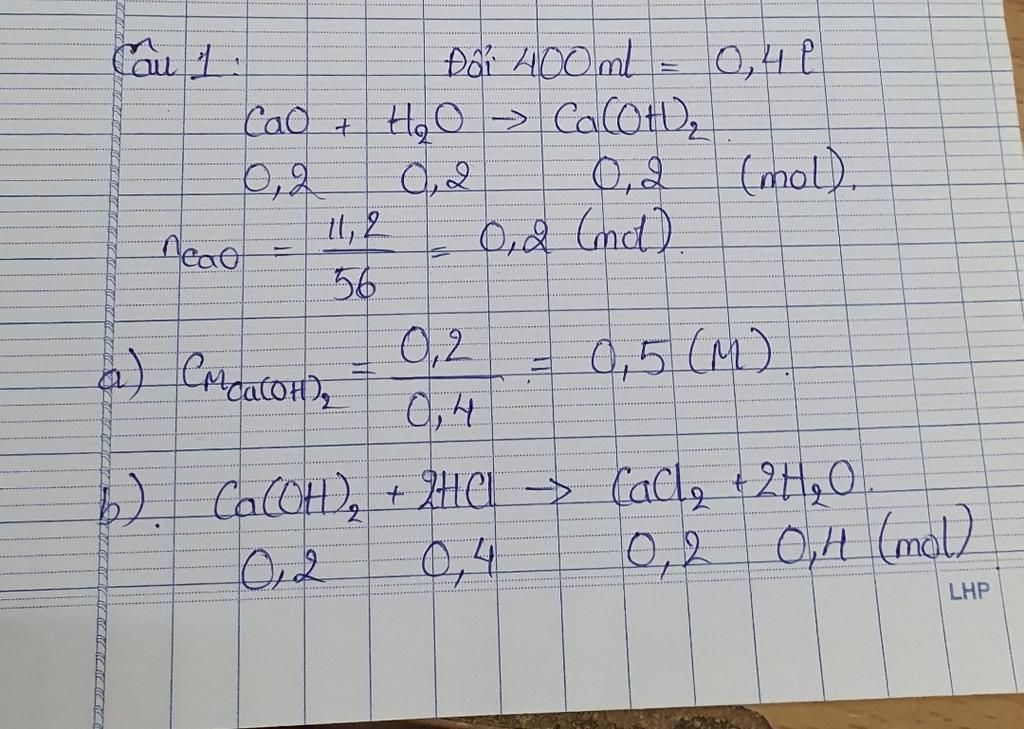 Câu 1: Đổi 400ml = 0,4l
CaO + H₂O → Ca(OH)₂
0,2 0,2 0,2 (mol).
nCaO = 11,2/56 = 0,2 (mol).
a) CM Ca(OH)₂ = 0,2/0,4 = 0,5 (M).
b). Ca(OH)₂ + 2HCl → CaCl₂ + 2H₂O.
0,2 0,4 0,2 0,4 (mol)
LHP